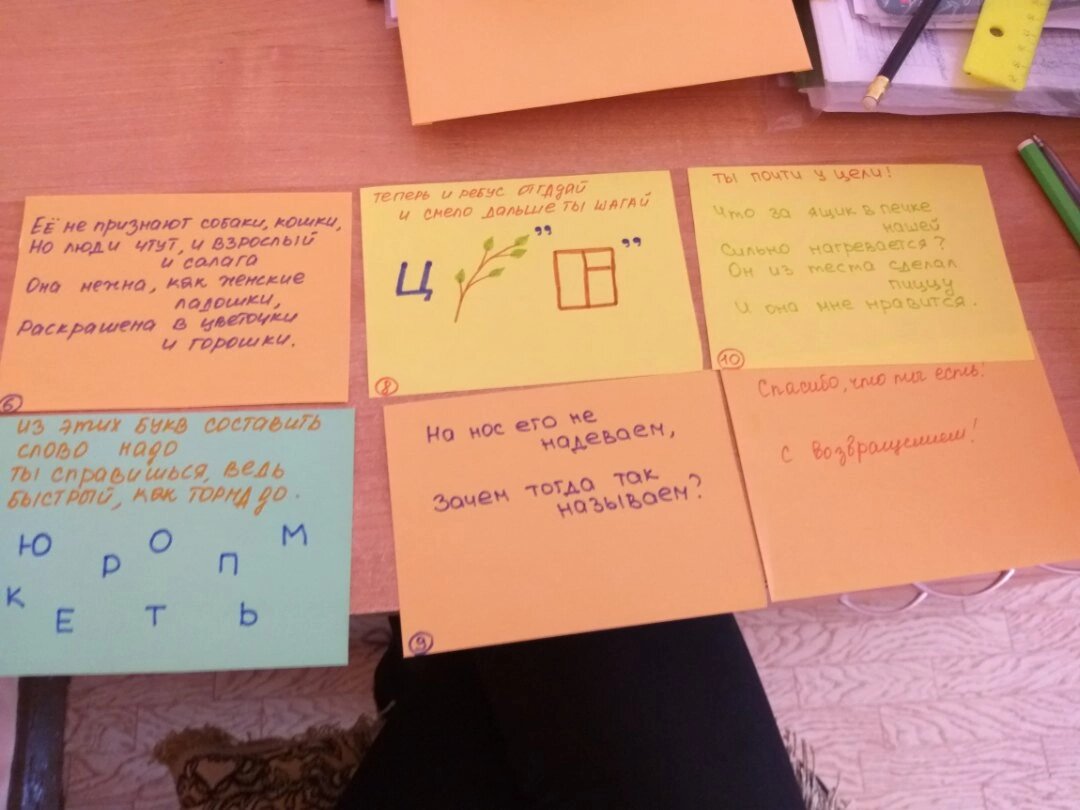 Её не признают собаки, кошки,
Но люди чтут, и взрослый
и салага
Она нежна, как женские
ладошки,
Раскрашена в цветочки
и горошки.
6
теперь и ребус отгадай
и смело дальше ты шагай
Ц ,, ,,
8
ты почти у цели!
Что за ящик в печке
нашей
Сильно нагревается?
Он из теста сделал
пиццу
И она мне нравится.
10
из этих букв составить
слово надо
ты справишься, ведь
быстрый, как торнадо.
Ю Р О П М
К Е Т Ь
На нос его не
надеваем,
Зачем тогда так
называем?
9
Спасибо, что ты есть!
С возвращением!